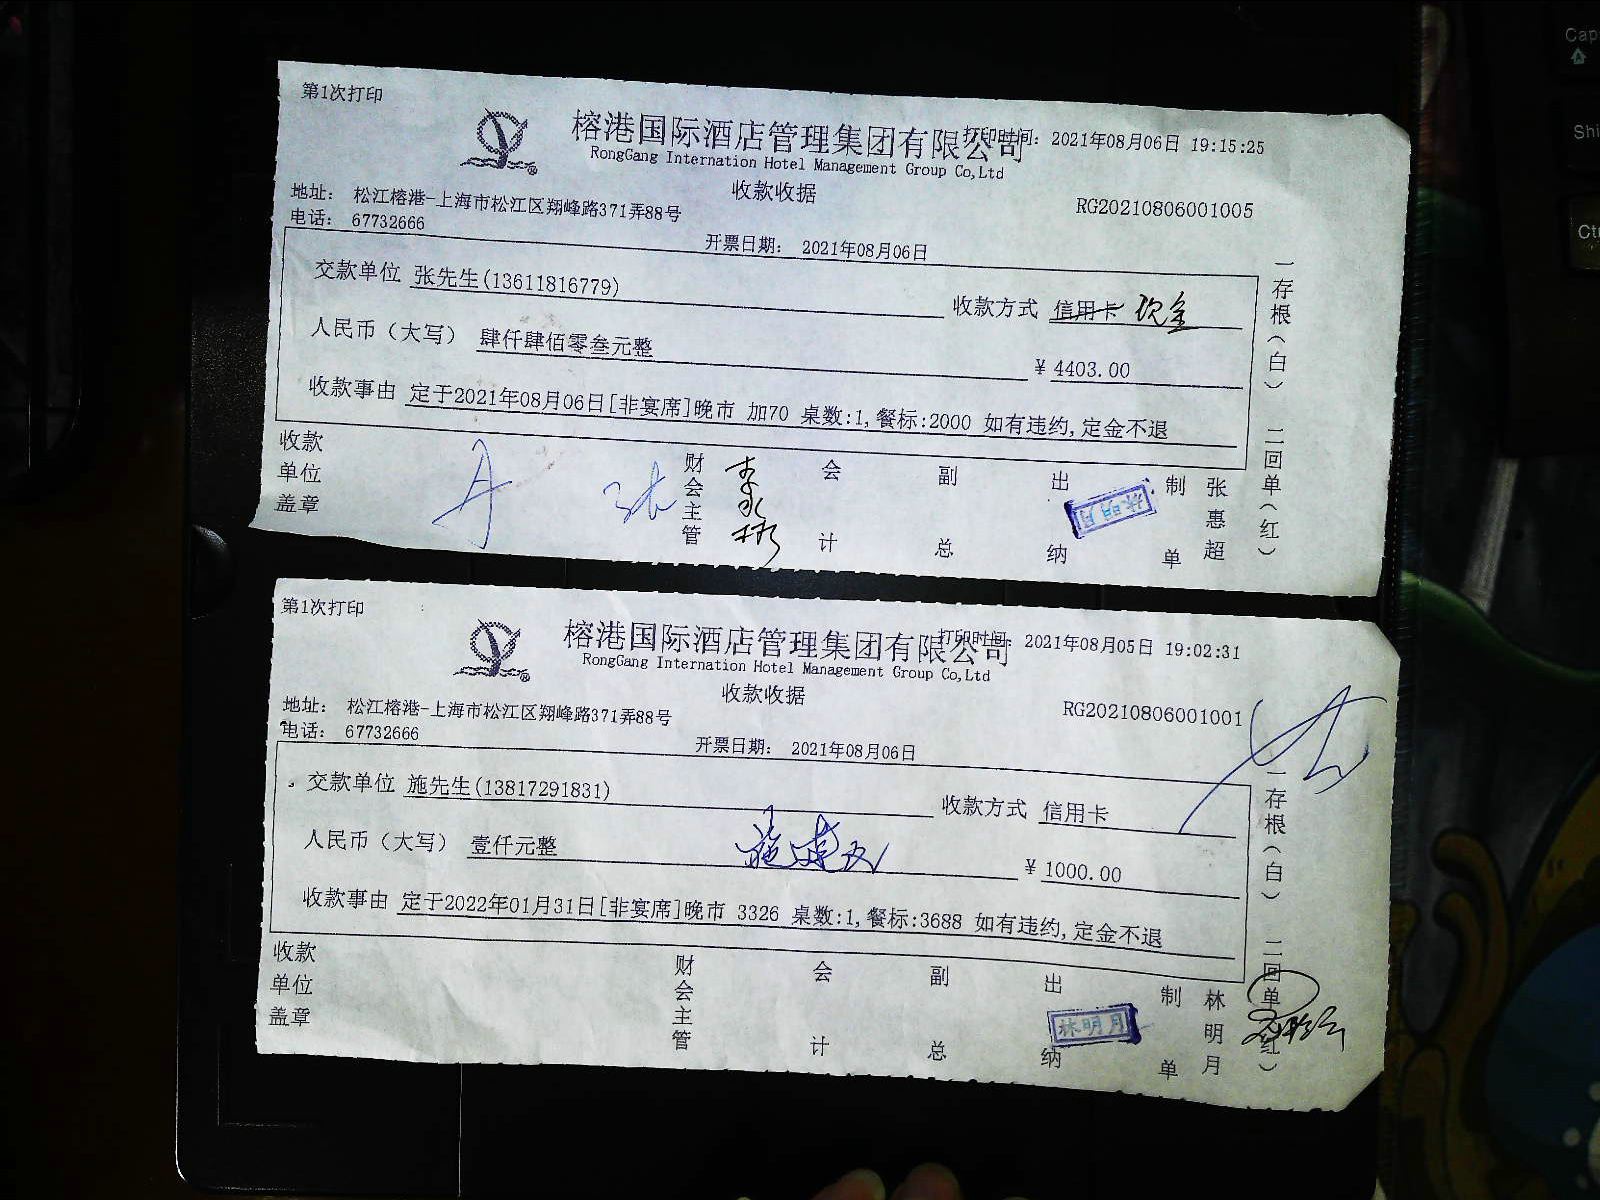 第1次打印
榕港国际酒店管理集团有限公司
打印时间: 2021年08月06日 19:15:25
RongGang Internation Hotel Management Group Co,Ltd
收款收据
地址: 松江榕港-上海市松江区翔峰路371弄88号
RG20210806001005
电话: 67732666
开票日期: 2021年08月06日
交款单位 张先生(13611816779)
收款方式 信用卡 现金
人民币(大写) 肆仟肆佰零叁元整
¥ 4403.00
收款事由 定于2021年08月06日[非宴席]晚市 加70 桌数:1,餐标:2000 如有违约,定金不退
一存根(白) 二回单(红)
收款单位盖章
张
财会主管
会计
副总
出纳
林明月
制单
张惠超
第1次打印
榕港国际酒店管理集团有限公司
打印时间: 2021年08月05日 19:02:31
RongGang Internation Hotel Management Group Co,Ltd
收款收据
地址: 松江榕港-上海市松江区翔峰路371弄88号
RG20210806001001
电话: 67732666
开票日期: 2021年08月06日
交款单位 施先生(13817291831)
收款方式 信用卡
人民币(大写) 壹仟元整
¥ 1000.00
收款事由 定于2022年01月31日[非宴席]晚市 3326 桌数:1,餐标:3688 如有违约,定金不退
一存根(白) 二回单(红)
收款单位盖章
财会主管
会计
副总
出纳
林明月
制单
林明月
Cap
Shi
Ct